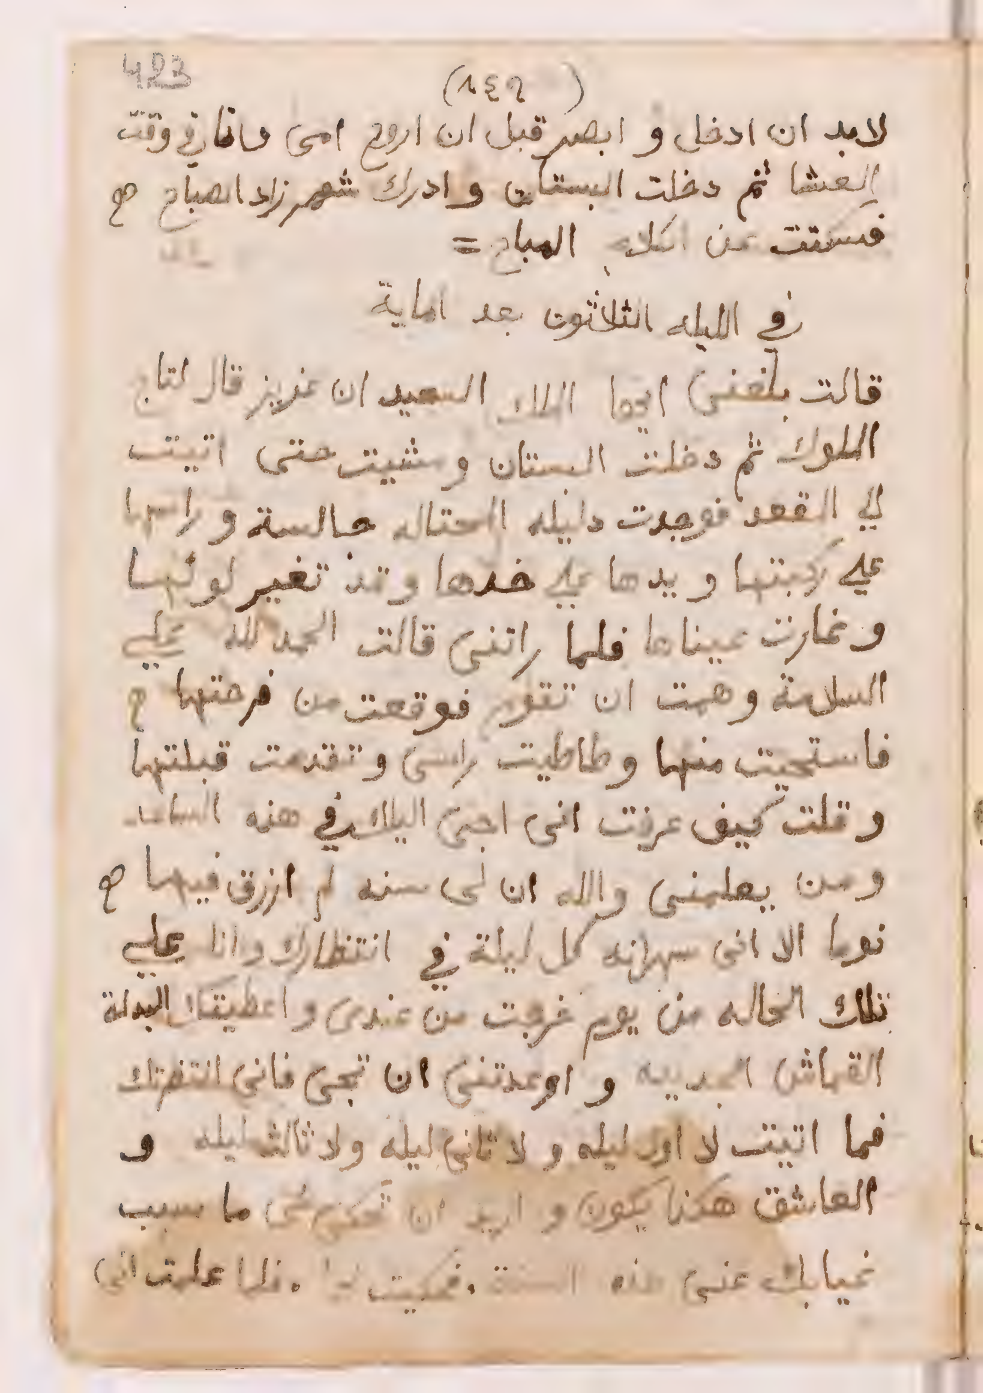 423
(١٤٩)
لابد ان ادخل و ابصر قبل ان اروح امى وكان في وقت
العشا ثم دخلت البستان وادرك شهرزاد الصباح
فسكتت عن الكلام المباح =
في الليله الثلاثون بعد الماية
قالت بلغنى ايها الملك السعيد ان عزيز قال لتاج
الملوك ثم دخلت البستان ومشيت حتى اتيت
الي القعد فوجدت دليله المحتاله جالسة وراسها
علي ركبتها ويدها علي خدها وقد تغير لونها
وغارت عيناها فلما راتنى قالت الحمد لله علي
السلامة وهمت ان تقوم فوقعت من فرحتها
فاستحيت منها وطاطيت راسى وتقدمت قبلتها
وقلت كيف عرفت انى اجى اليك في هذه الساعه
ومن يعلمنى والله ان لى سنه لم ازرق فيها
نوما الا انى سهرانه كل ليلة في انتظارك وانا علي
تلك الحاله من يوم خرجت من عندى واعطيتك البدلة
القماش الجديده و اوعدتنى ان تجى فانى انتظرتك
فما اتيت لا اول ليله و لا ثانى ليله ولا ثالث ليله و
العاشق هكذا يكون و اريد ان تحكى لى ما سبب
غيابك عنى هذه السنة . فحكيت لها . فلما علمت انى